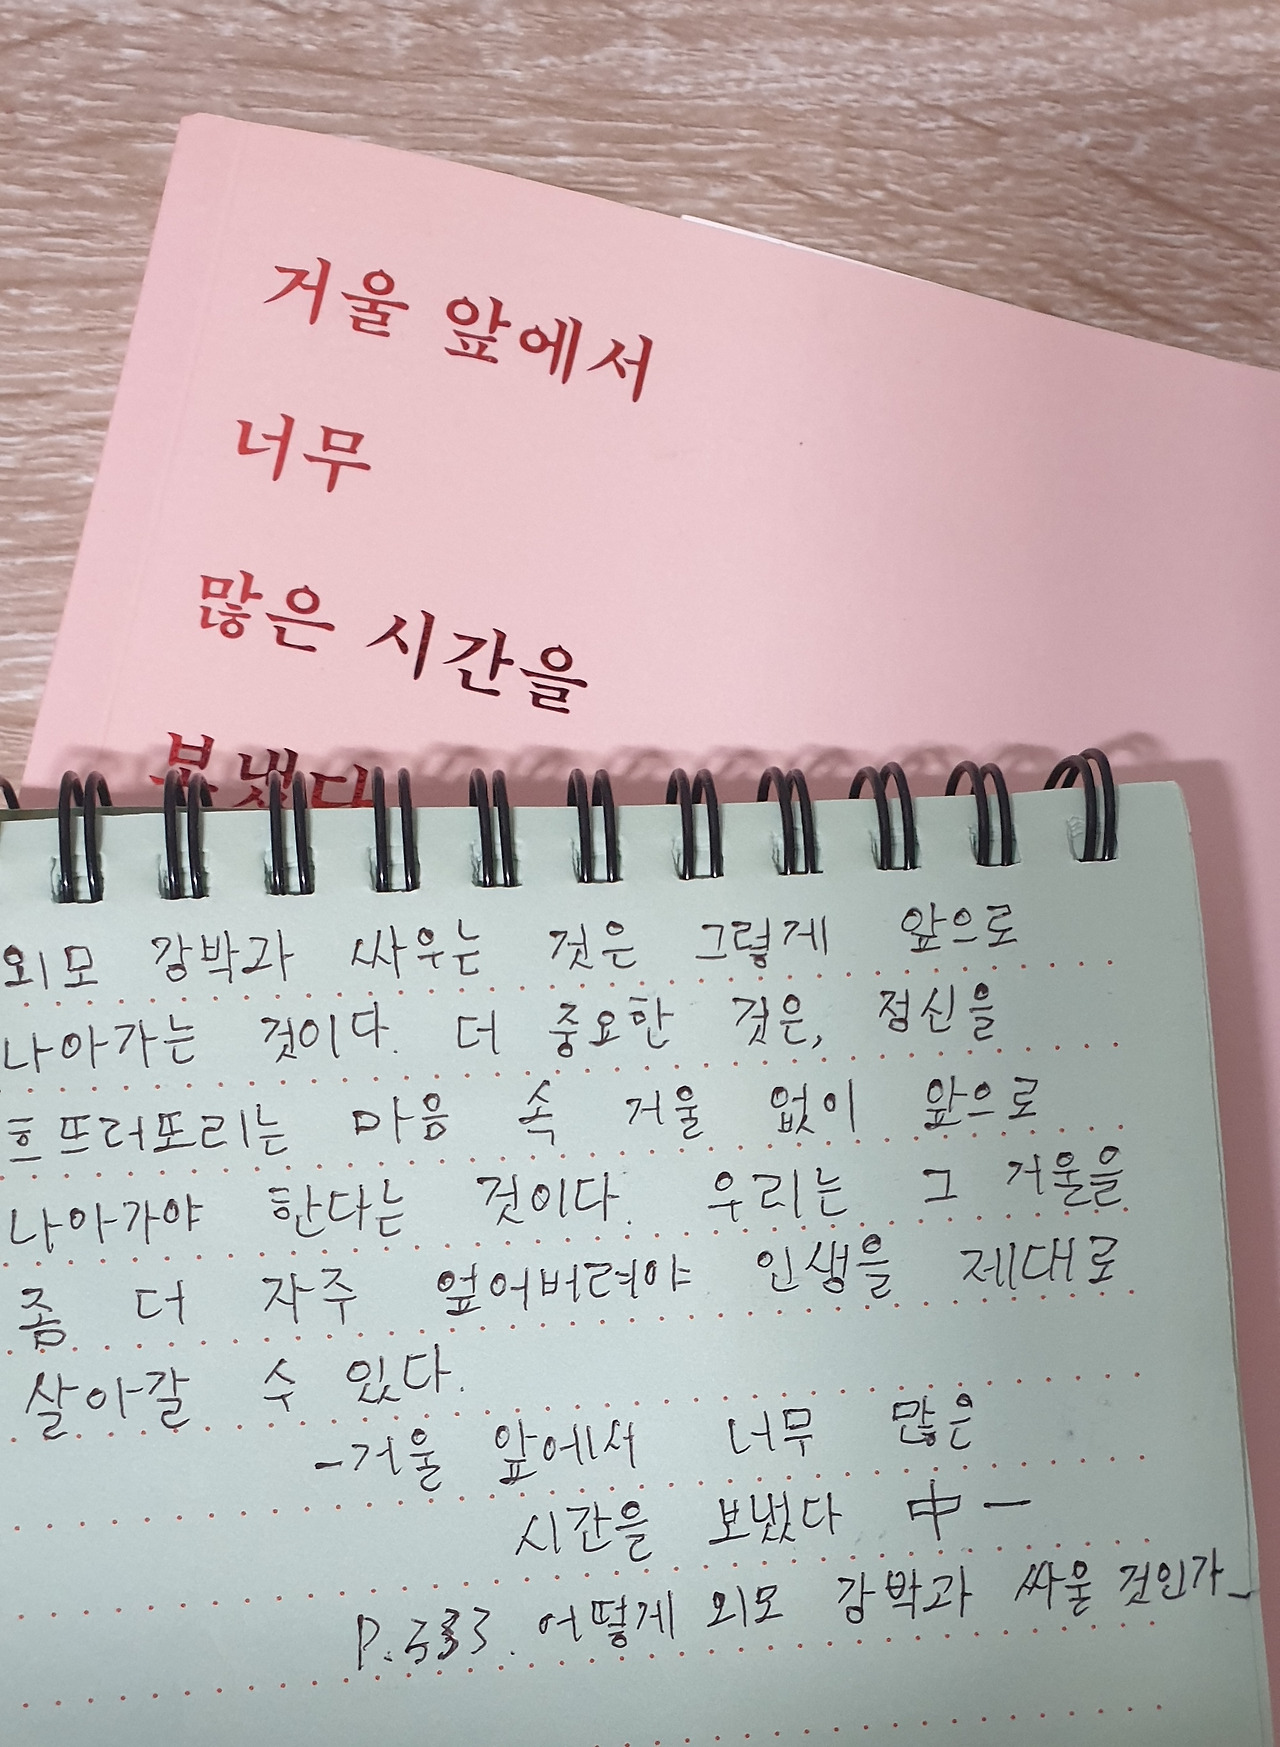 거울 앞에서
너무
많은 시간을
보냈다
외모 강박과 싸우는 것은 그렇게 앞으로
나아가는 것이다. 더 중요한 것은, 정신을
흐뜨러또리는 마음 속 거울 없이 앞으로
나아가야 한다는 것이다. 우리는 그 거울을
좀 더 자주 엎어버려야 인생을 제대로
살아갈 수 있다.
-거울 앞에서 너무 많은
시간을 보냈다 中-
P.333. 어떻게 외모 강박과 싸울 것인가_